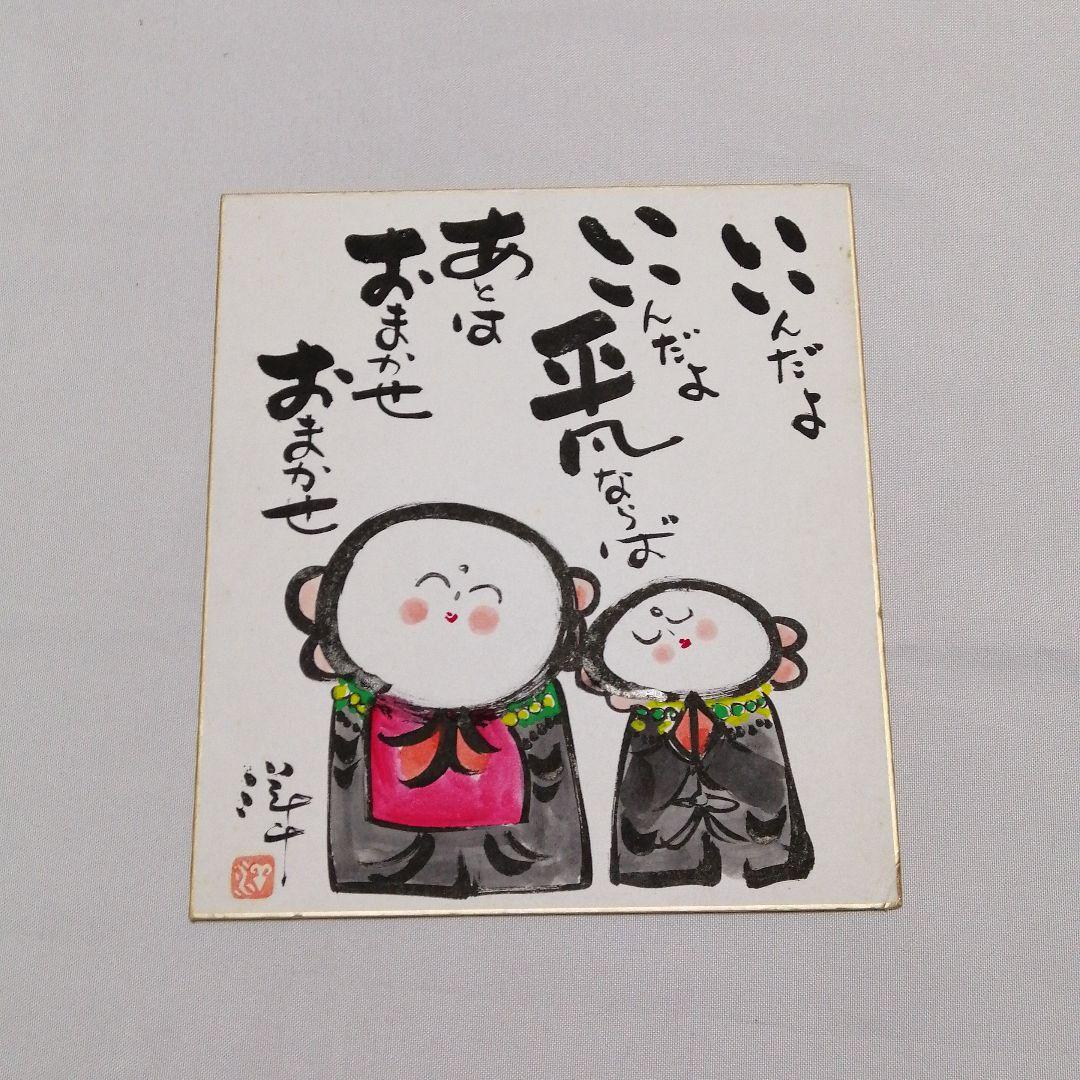 いいんだよ
いいんだよ
平凡ならば
あとは
おまかせ
おまかせ